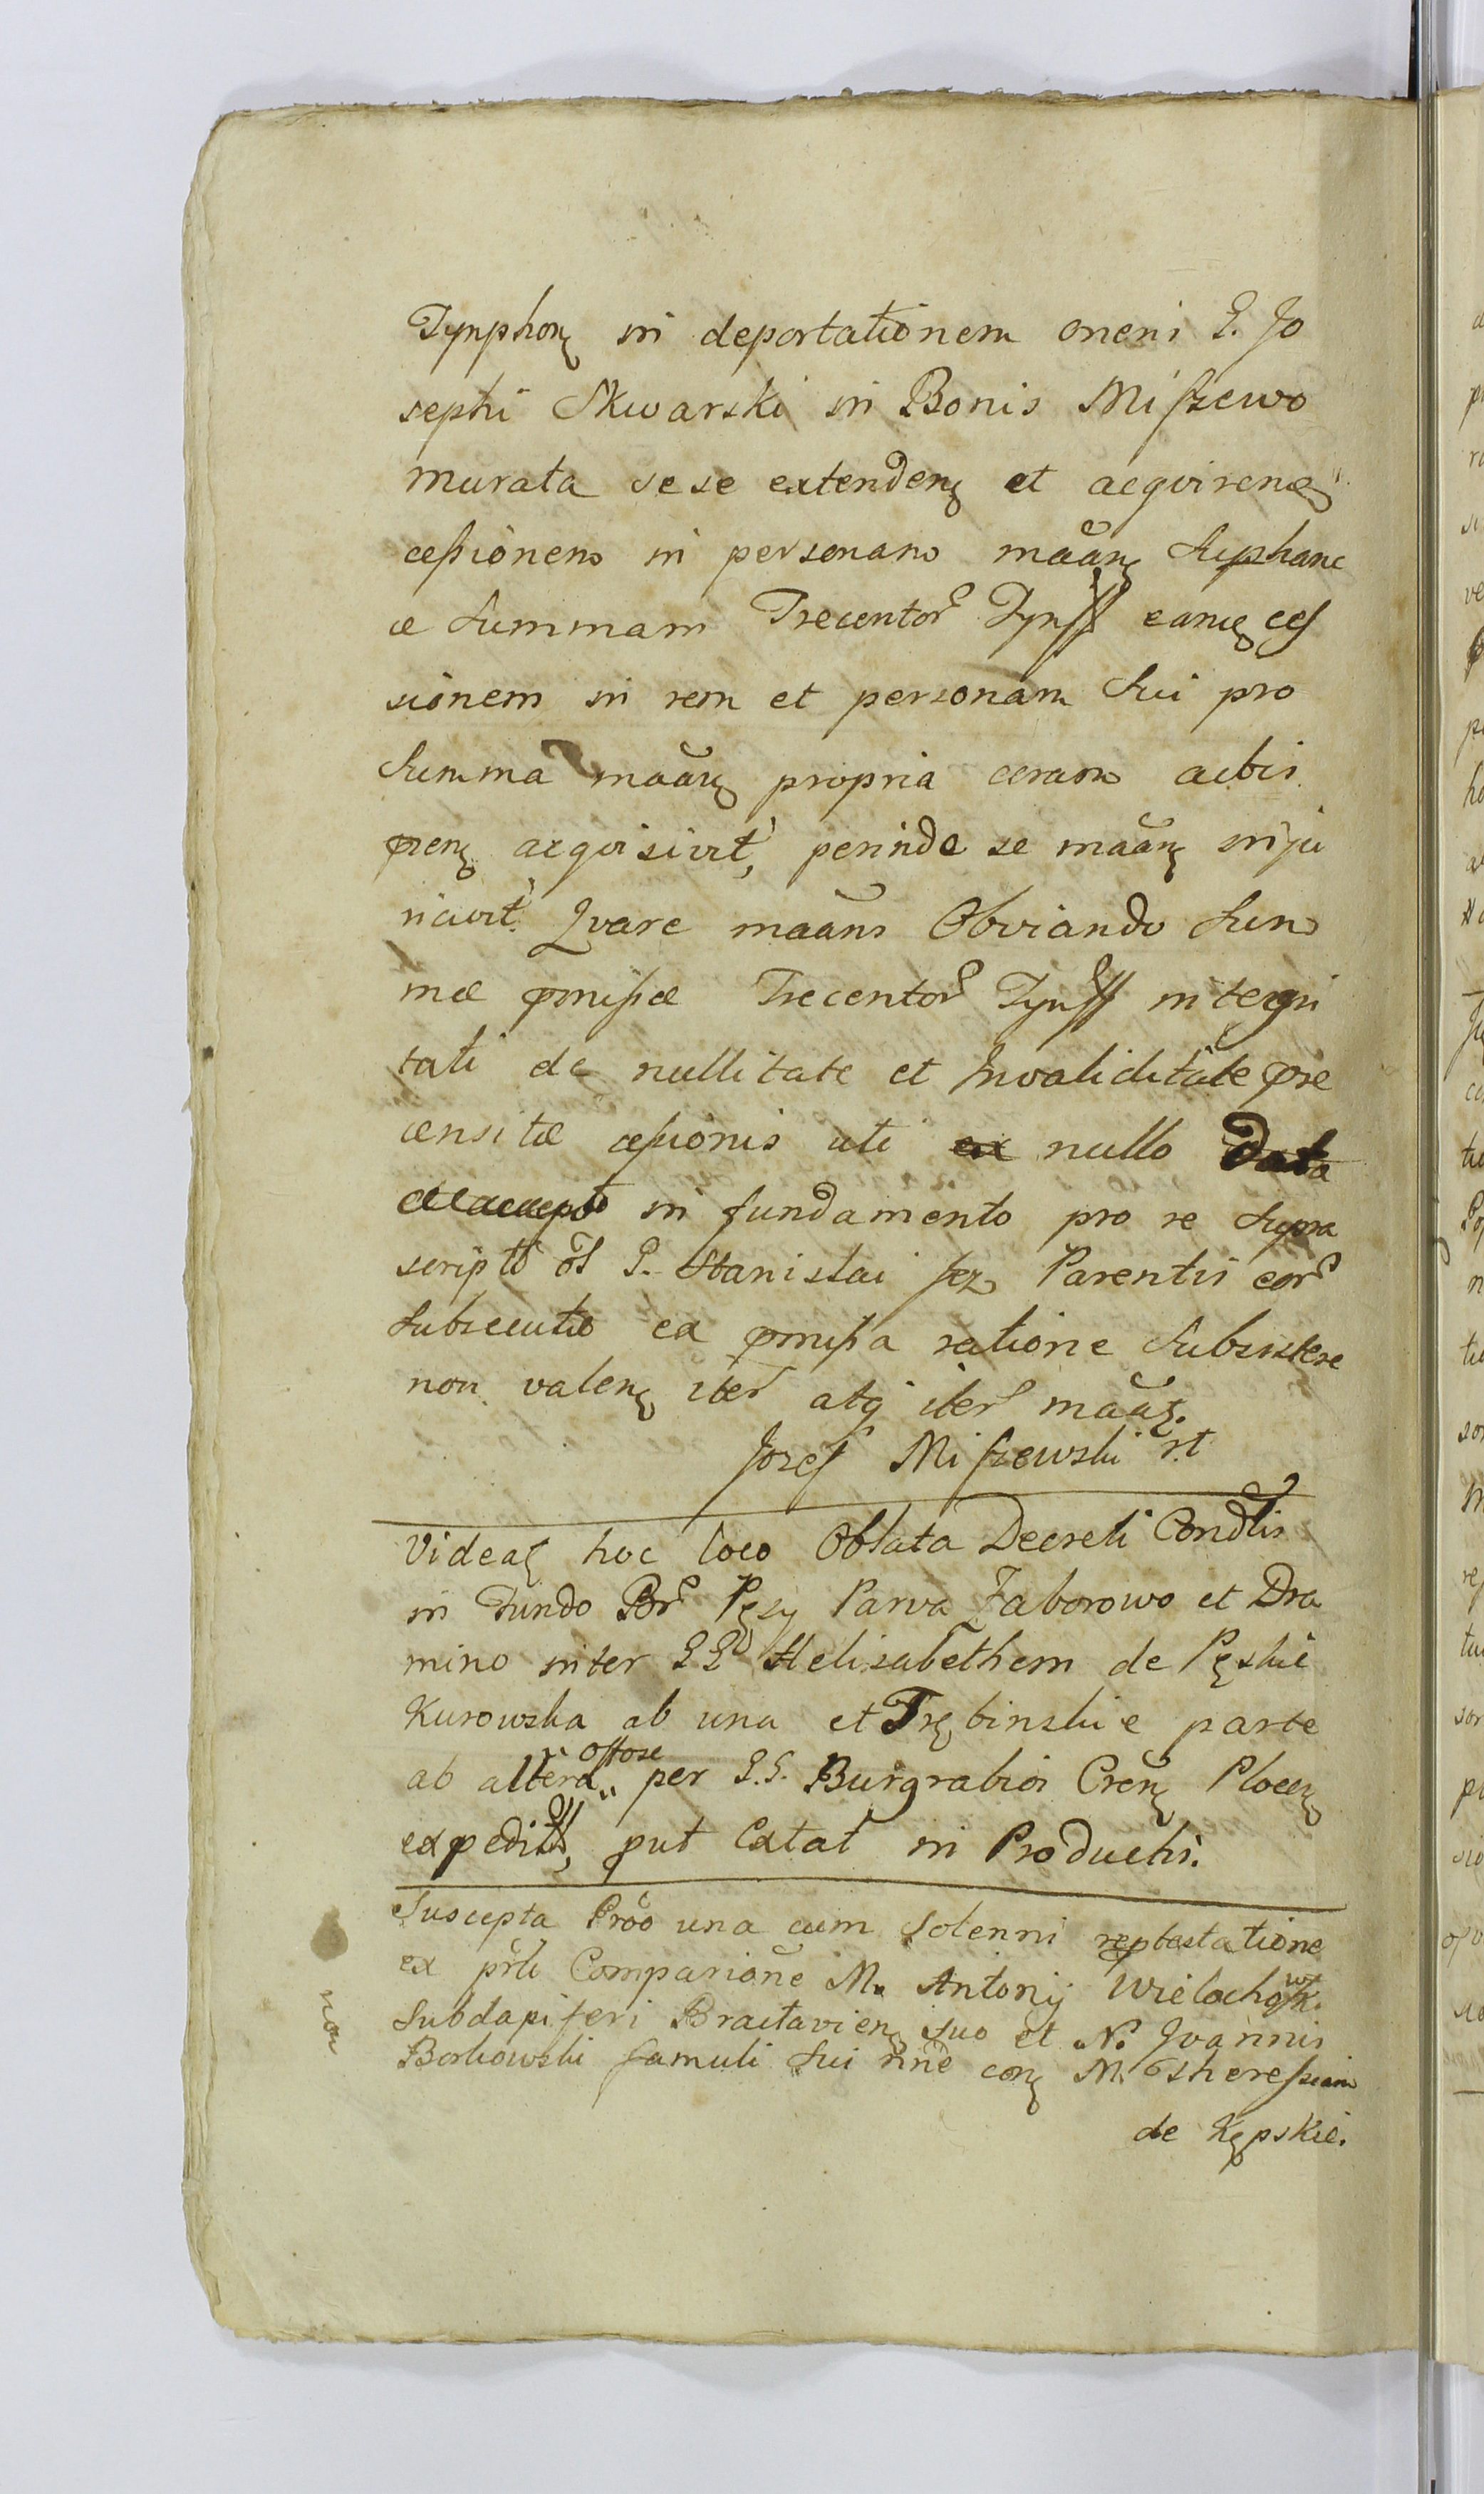 Tynphonȩ in deportationem oneni G. Jo
sephi Skwarski in Bonis Miſzewo
murata sese extendenȩ et acqvirenȩ
ceſsionem in personam maānȩ Suphanc
ce Summam Trecentor Tynff eamȩ ceſ
sionem in rem et personam Sui pro
Summa maānȩ propria coram actis
prenȩ acqvisivit, perinde se maānȩ inju
riavit. Qvare maāns Obviando Sum
mæ pmiſsæ Trecentor Tynff integri
tati de nullitate et Invaliditate præ
censitæ ceſsionis uti ex nullo Data
in fundamento pro re Supra
scripti ōl G. Stanislai ſez Parentis eor
Subsecutæ ea pmiſsa ratione Subsistere
non valenȩ iter atq iter maātȩ.
Jozef Miſzewski rt
Videatȩ hoc loco Oblata Decreti Condlis
in Fundo Bor Pęsy Parva Zaborowo et Dra
mino inter GG Helisabethem de Pęskie
Kurowska ab una et Trębinskie parte
ab altera offose per G.G. Burgrabios Crenȩ Plocenȩ
expeditl, put Extat in Productis.
Suscepta Proō una cum Solenni reptestatione
ex prti Comparione M. Antonij Wielohowsk.
Subdapiferi Bractavienȩ suo et N. Joannis
Borkowski famuli Sui nne conȩ M. Thereſsiam
de Kępskie.
non